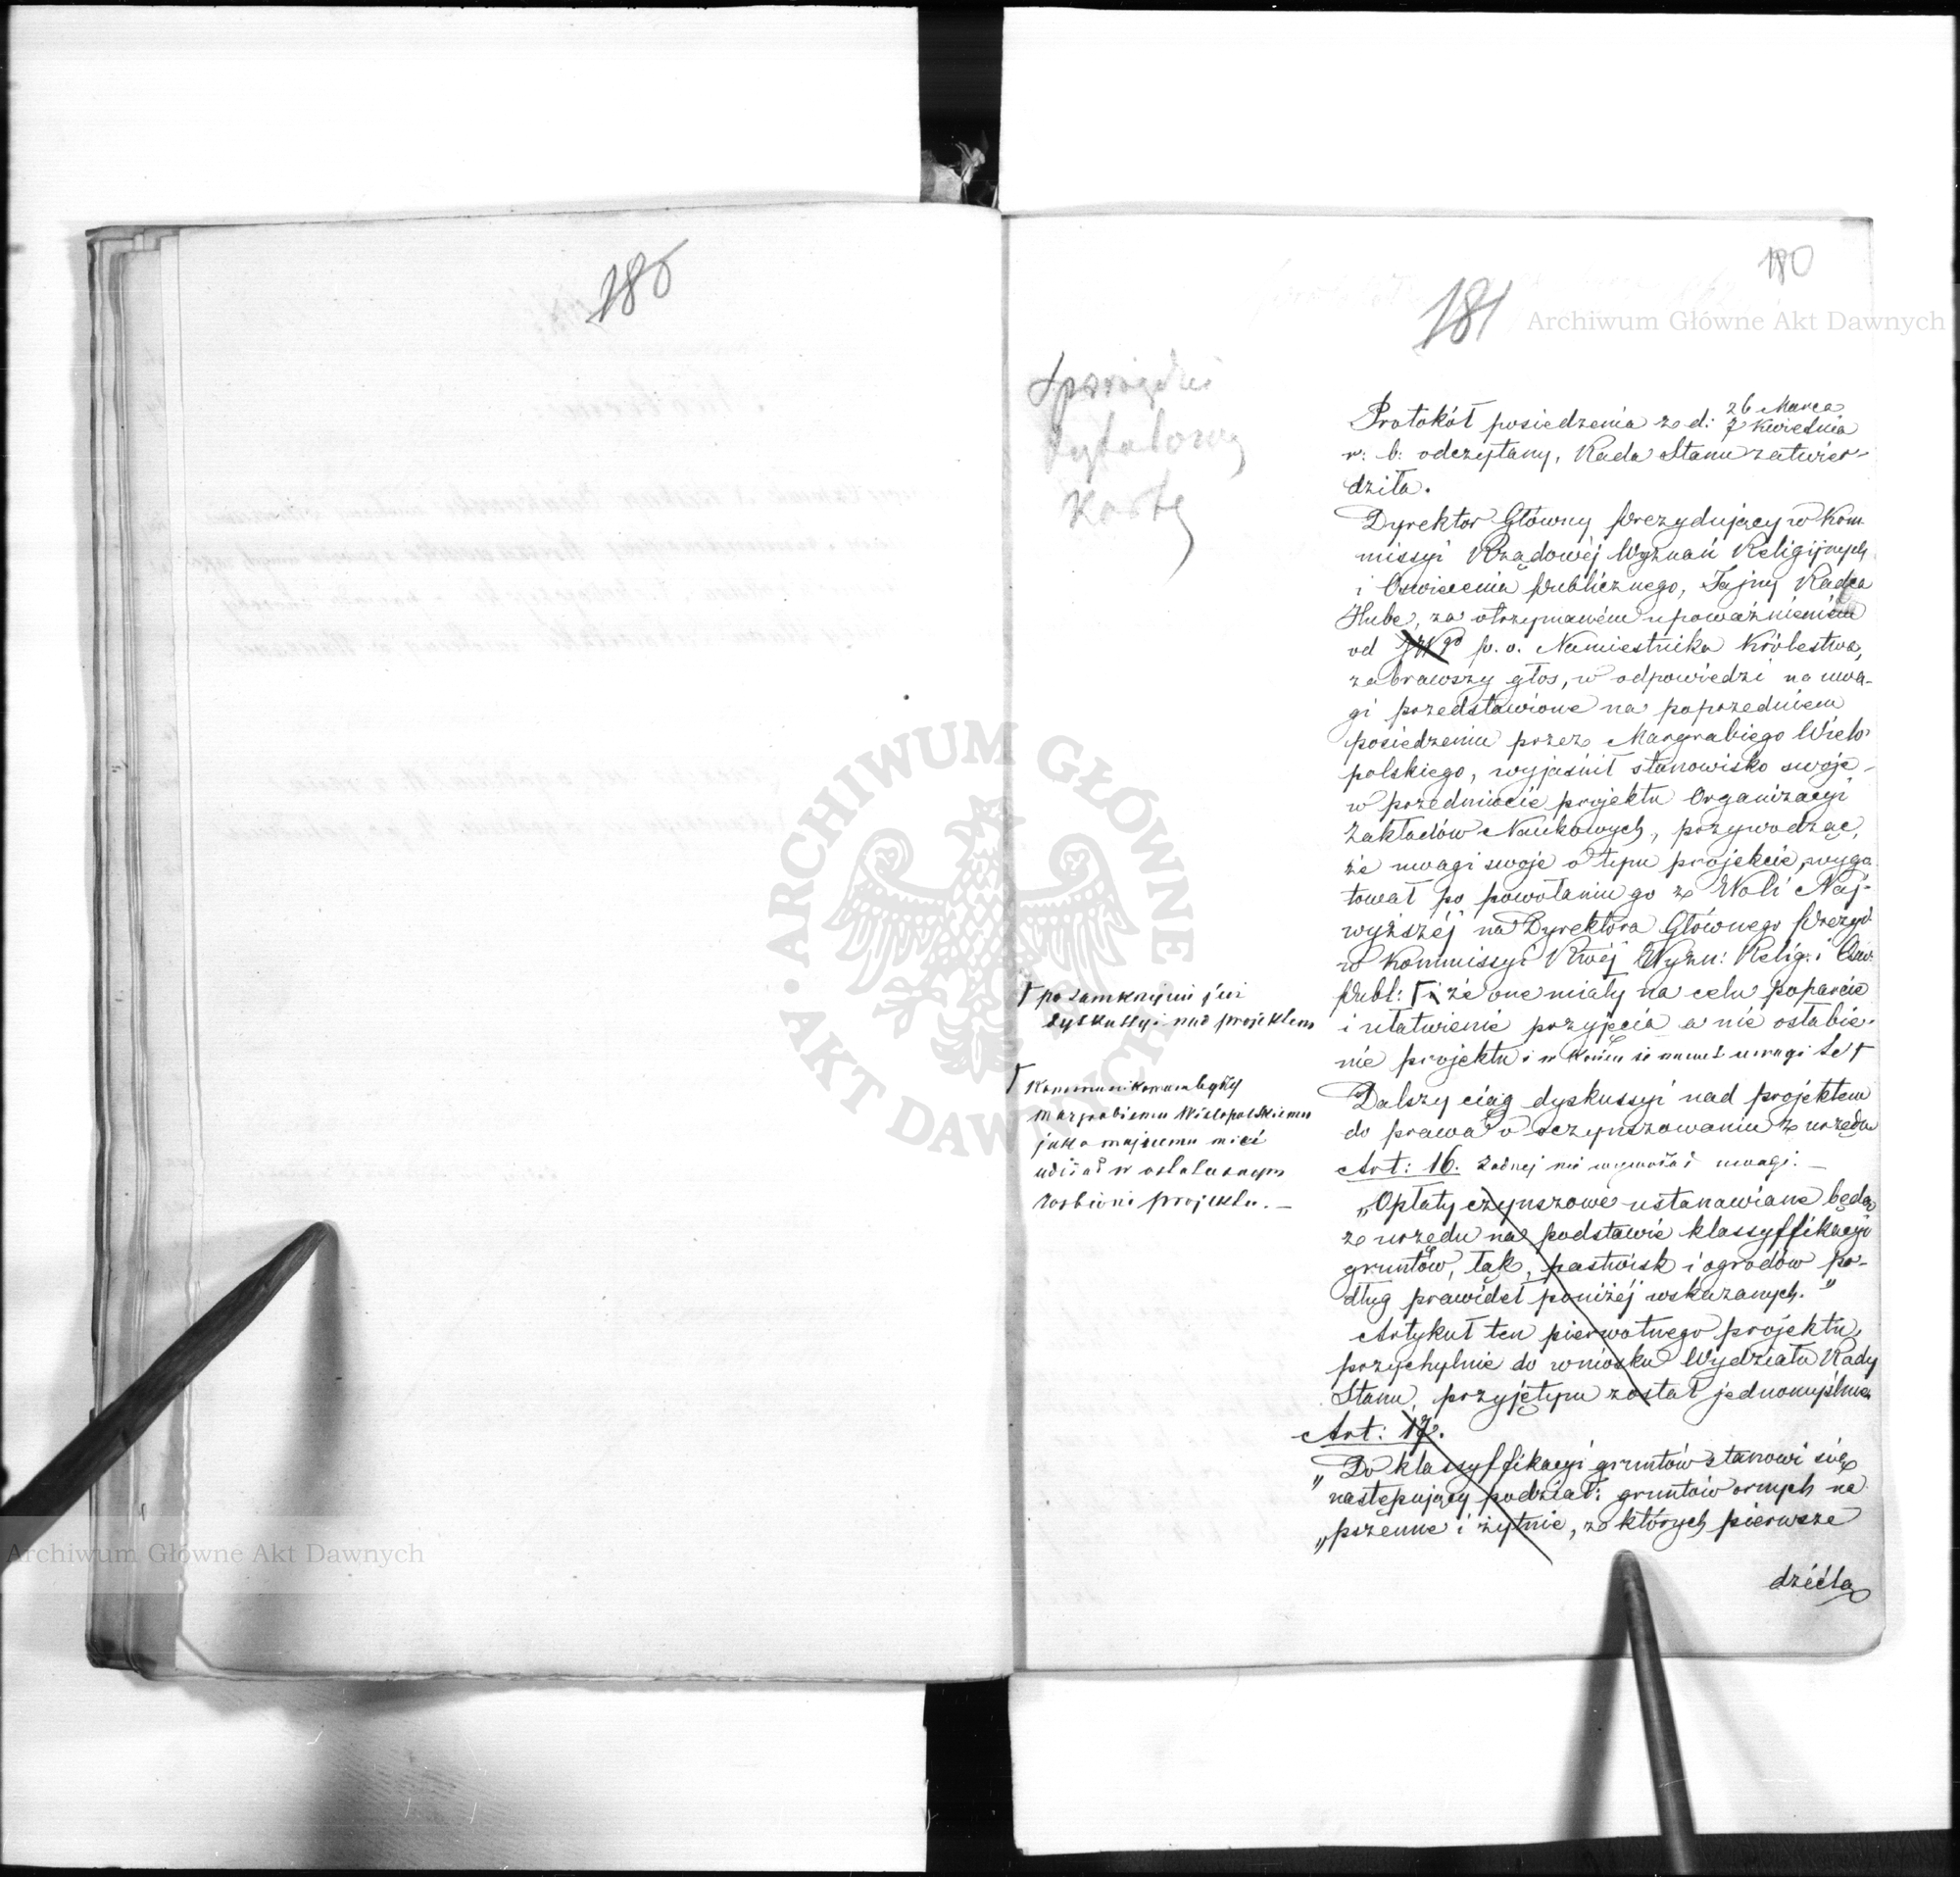 180
181
180
Archiwum Główne Akt Dawnych
Sporządzić
tytułową
Kartę
Protokół posiedzenia z d: 26 Marca
7 Kwietnia
r: b: odczytany, Rada Stanu zatwier-
dziła.
Dyrektor Główny Prezydujący w Kom
missyi Rządowej Wyznań Religijnych
i Oświecenia Publicznego, Tajny Radca
Hube, za otrzymaniem upoważnieniem
od JW go p. o. Namiestnika Królestwa,
zabrawszy głos, w odpowiedzi na uwa-
gi przedstawione na poprzedniem
posiedzeniu przez Margrabiego Wielo-
polskiego, wyjaśnił stanowisko swoje
w przedmiocie projektu Organizacyi
Zakładów Naukowych, przywodząc,
że uwagi swoje o tym projekcie, wygo
tował po powołaniu go z Woli Naj-
wyższéj na Dyrektora Głównego Prezyd.
w Kommissyi Rwéj Wyzn: Relig: i Ośw.
Publ: Γ i że one miały na celu poparcie
i ułatwienie przyjęcia a nie osłabie-
nie projektu i w końcu że nawet uwagi te Γ
Γ po zamknięciu już
dyskussyi nad projektem
Γ Kommunikowane były
Margrabiemu Wielopolskiemu
jako mającemu mieć
udział w ostatecznym
rozbiorze projektu. —
Dalszy ciąg dyskussyi nad projektem
do prawa o oczynszowaniu z urzędu
Art: 16. żadnej nie wywołał uwagi. —
„Opłaty czynszowe ustanawiane będą
z urzędu na podstawie klassyffikacyi
gruntów, łąk, pastwisk i ogrodów po-
dług prawideł poniżéj wskazanych."
Artykuł ten pierwotnego projektu,
przychylnie do wniosku Wydziału Rady
Stanu, przyjętym został jednomyślnie.
Art: 17.
„Do klassyffikacyi gruntów stanowi się
„następujący podział: gruntów ornych na
„pszenne i żytnie, z których pierwsze
dzielą
ARCHIWUM GŁÓWNE
AKT DAWNYCH
Archiwum Główne Akt Dawnych